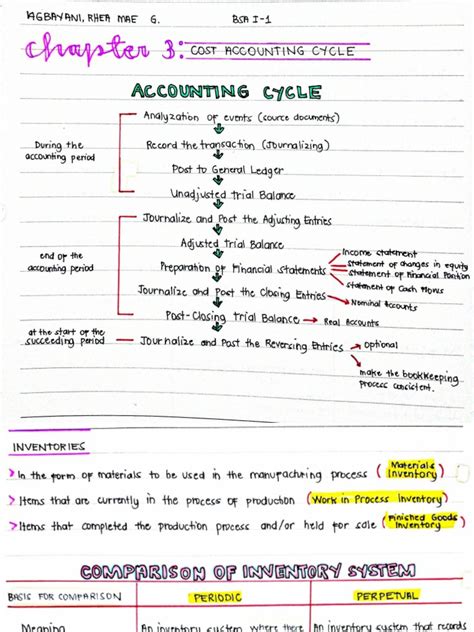 AGBAYANI, RHEA MAE G. BSA I-1
Chapter 3: COST ACCOUNTING CYCLE
ACCOUNTING CYCLE
Analyzation of events (source documents)
During the accounting period
Record the transaction (Journalizing)
Post to General Ledger
Unadjusted Trial Balance
Journalize and Post the Adjusting Entries
Adjusted Trial Balance
end of the accounting period
Preparation of Financial statements
Income statement
statement of changes in equity
statement of Financial Position
statement of Cash Flows
Journalize and Post the Closing Entries
Nominal Accounts
Post-Closing Trial Balance → Real Accounts
at the start of the succeeding period
Journalize and Post the Reversing Entries
Optional
make the bookkeeping
process consistent.
INVENTORIES
> In the form of materials to be used in the manufacturing process (Materials Inventory)
> Items that are currently in the process of production (Work in Process Inventory)
> Items that completed the production process and/or held for sale (Finished Goods Inventory)
COMPARISON OF INVENTORY SYSTEM
BASIS FOR COMPARISON PERIODIC PERPETUAL
Meaning An inventory system where there An inventory system that records